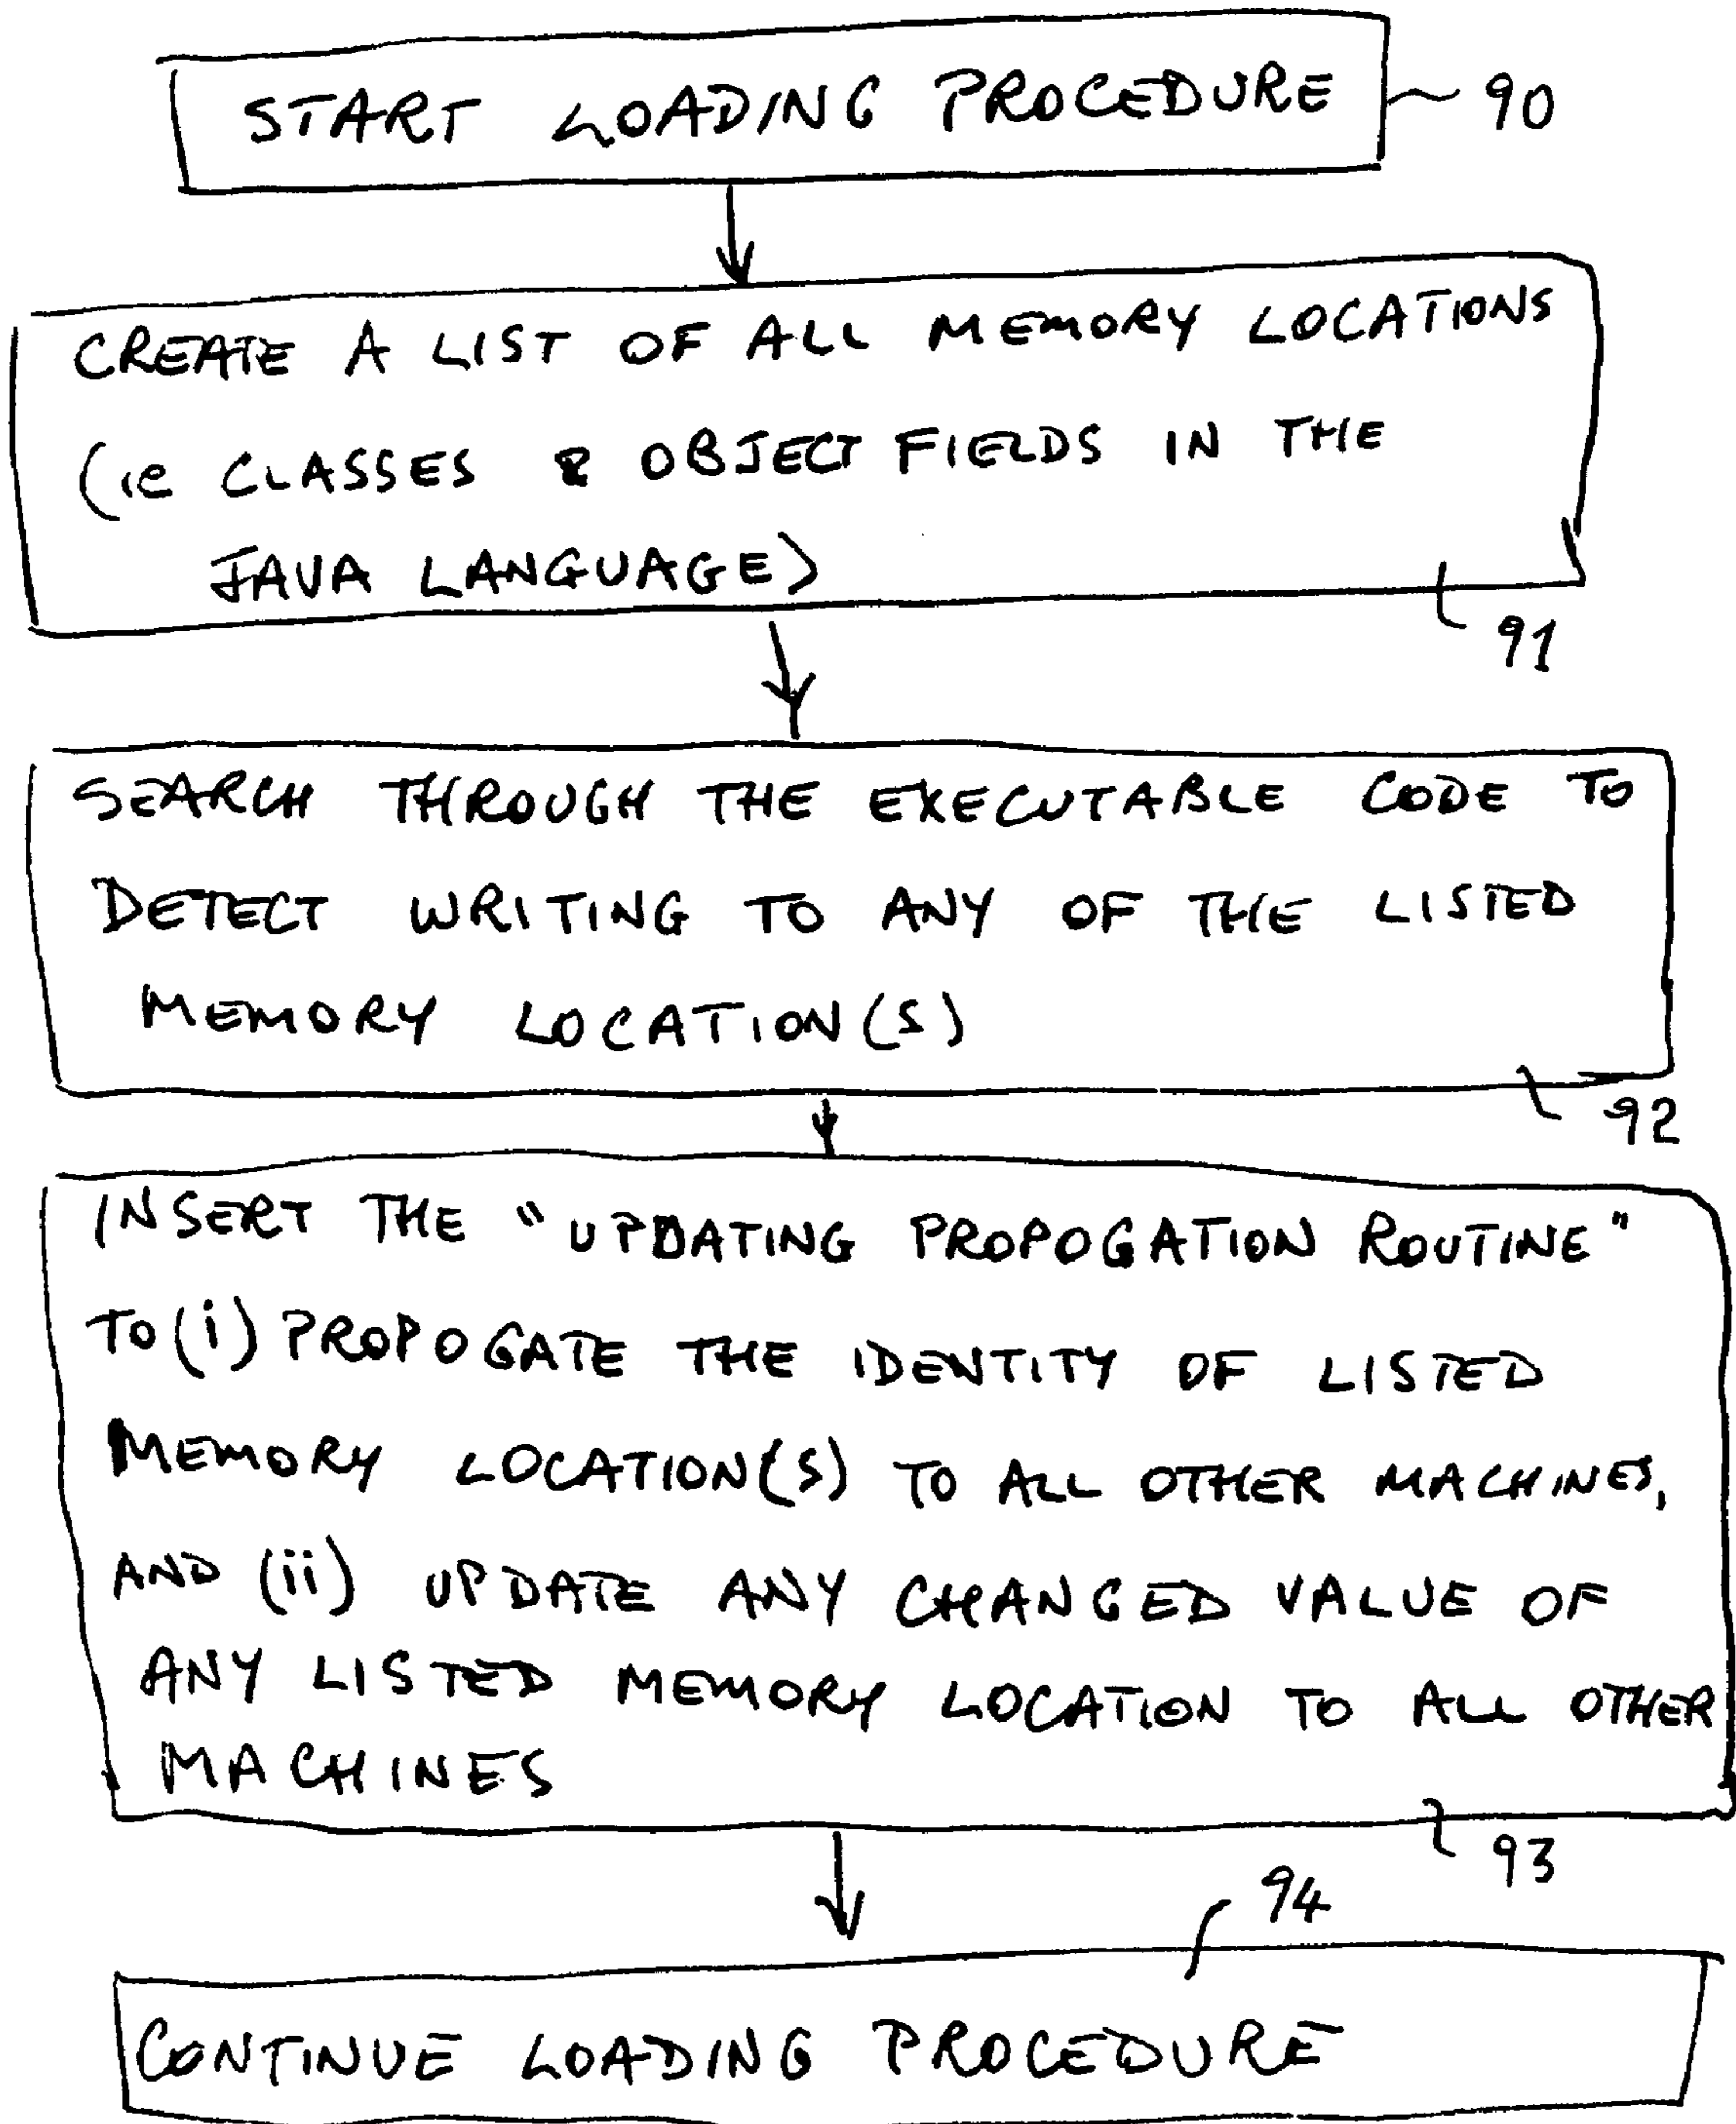 START LOADING PROCEDURE 90
CREATE A LIST OF ALL MEMORY LOCATIONS
(ie CLASSES & OBJECT FIELDS IN THE
JAVA LANGUAGE)
91
SEARCH THROUGH THE EXECUTABLE CODE TO
DETECT WRITING TO ANY OF THE LISTED
MEMORY LOCATION(S)
92
INSERT THE "UPDATING PROPOGATION ROUTINE"
TO (i) PROPOGATE THE IDENTITY OF LISTED
MEMORY LOCATION(S) TO ALL OTHER MACHINES,
AND (ii) UPDATE ANY CHANGED VALUE OF
ANY LISTED MEMORY LOCATION TO ALL OTHER
MACHINES
93
94
CONTINUE LOADING PROCEDURE